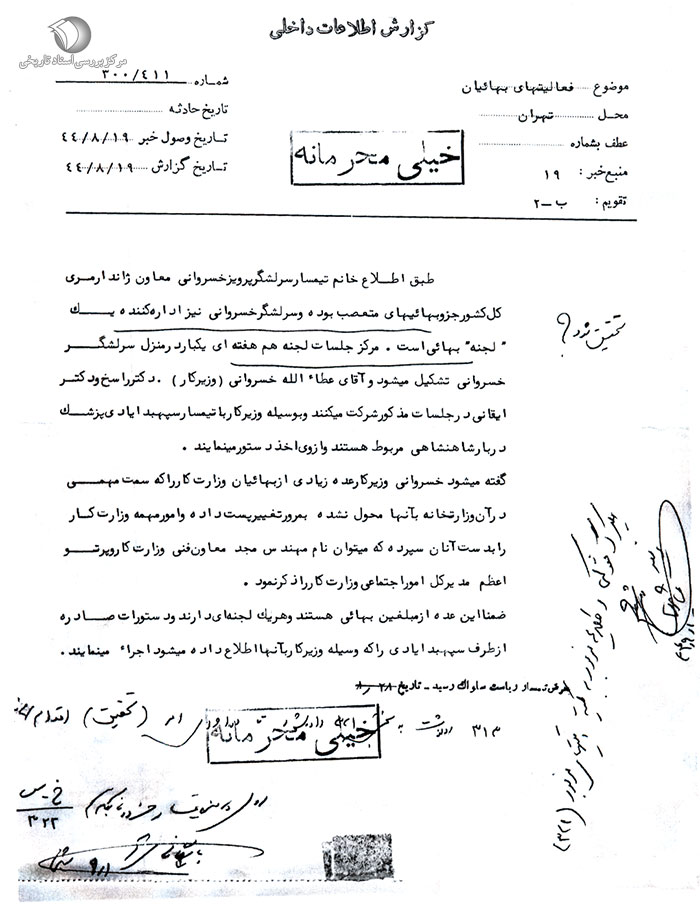 گزارش اطلاعات داخلی
مرکز بررسی اسناد تاریخی
موضوع ..... فعالیتهای بهائیان
شماره ..... ۳۰۰/۴۱۱
محل ..... تهران
تاریخ حادثه
عطف بشماره
تاریخ وصول خبر ۴۴/۸/۱۹
منبع خبر : ۱۹
تاریخ گزارش ۴۴/۸/۱۹
تقویم : ب ـ ۲
خیلی محرمانه
طبق اطلاع خانم تیمسار سرلشگر پرویز خسروانی معاون ژاندارمری
کل کشور جزو بهائیهای متعصب بوده و سرلشگر خسروانی نیز اداره کننده یک
" لجنه " بهائی است . مرکز جلسات لجنه هم هفته ای یکبار در منزل سرلشگر
خسروانی تشکیل میشود و آقای عطاء الله خسروانی (وزیر کار) . دکتر راسخ و دکتر
ایقانی در جلسات مذکور شرکت میکنند و بوسیله وزیر کار با تیمسار سپهبد ایادی پزشک
دربار شاهنشاهی مربوط هستند و از وی اخذ دستور مینمایند .
گفته میشود خسروانی وزیر کار عده زیادی از بهائیان وزارت کار را که سمت مهمی
در آن وزارتخانه بآنها محول نشده بمرور تغییر پست داده و امور مهمه وزارت کار
را بدست آنان سپرده که میتوان نام مهندس مجد معاون فنی وزارت کار و پرتو
اعظم مدیر کل امور اجتماعی وزارت کار را ذکر نمود .
ضمنا این عده از مبلغین بهائی هستند و هر یک لجنه ای دارند و دستورات صادره
از طرف سپهبد ایادی را که وسیله وزیر کار بآنها اطلاع داده میشود اجراء مینمایند .
تحقیق شود ؟
بعرض تیمسار ریاست ساواک رسید ـ تاریخ ۸/۲۸
۳۱۳
(تحقیق) اقدام
خیلی محرمانه
۳۲۲
(۳۲۱)